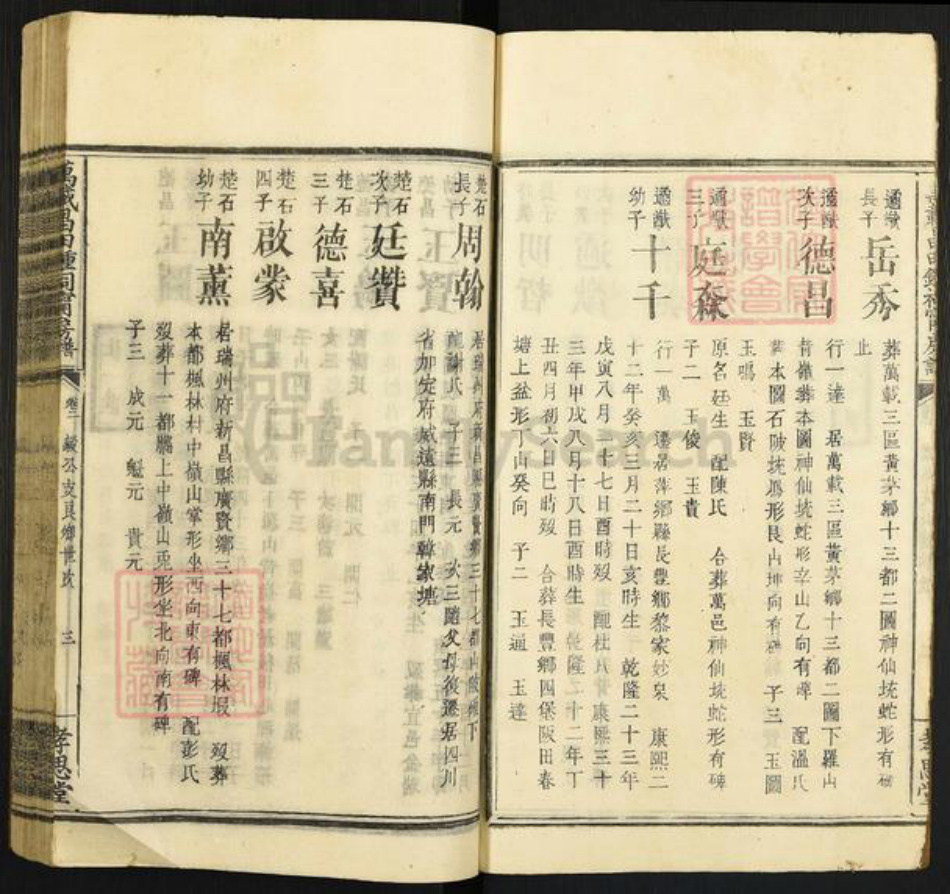 遹猷長子 岳秀
葬萬載三區黃茅鄉十三都二圖神仙坑蛇形有碑
止
遹猷次子 德昌
行一達 居萬載三區黃茅鄉十三都二圖下羅山
葬本圖神仙坑蛇形辛山乙向有碑 配溫氏
葬本圖石陂坑 形艮山坤向有碑 子三 玉圖
玉鳴 玉賢
遹猷三子 庭森
原名廷生 配陳氏 合葬萬邑神仙坑蛇形有碑
子二 玉俊 玉貴
遹猷幼子 十千
行一萬 遷居萍鄉縣長豐鄉黎家妙泉 康熙二
十二年癸亥三月二十日亥時生 乾隆二十三年
戊寅八月二十七日酉時歿 配杜氏 康熙三十
三年甲戌八月十八日酉時生 乾隆二十二年丁
丑四月初六日巳時歿 合葬長豐鄉四堡陂田春
塘上盆形丁山癸向 子二 玉通 玉達
楚石長子 周翰
居瑞州府新昌縣廣賢鄉三十七都山陂 下
配謝氏 子三 長元 次三隨父母後遷居四川
省加定府威遠縣南門韓家塘
楚石次子 廷讚
楚石三子 德喜
楚石四子 啟蒙
楚石幼子 南薰
居瑞州府新昌縣廣賢鄉三十七都楓林塅 歿葬
本都楓林村中嶺山掌形坐西向東有碑 配彭氏
歿葬十一都鵬上中嶺山兎形坐北向南有碑
子三 成元 魁元 貴元
萬載昌田鍾祠
卷二
三
孝思堂
孝思堂
FamilySearch